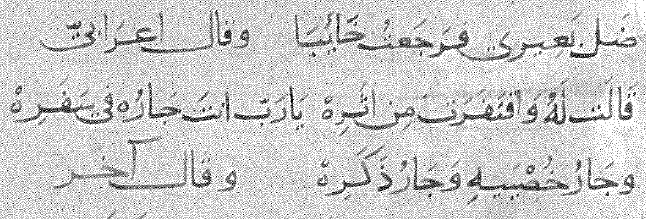 ضَل بَعيري وَرَجَعتُ خَائِبَا وقال اعرَابيّ
قَالَت لَهُ وَاقتَفَرَت مِن اثَرِهْ يَارَبّ انتَ جَارُه فِي سَفَرِهْ
وجَارُ خُصْيَيهِ وَجَارُ ذَكَرِهْ وقال آخر